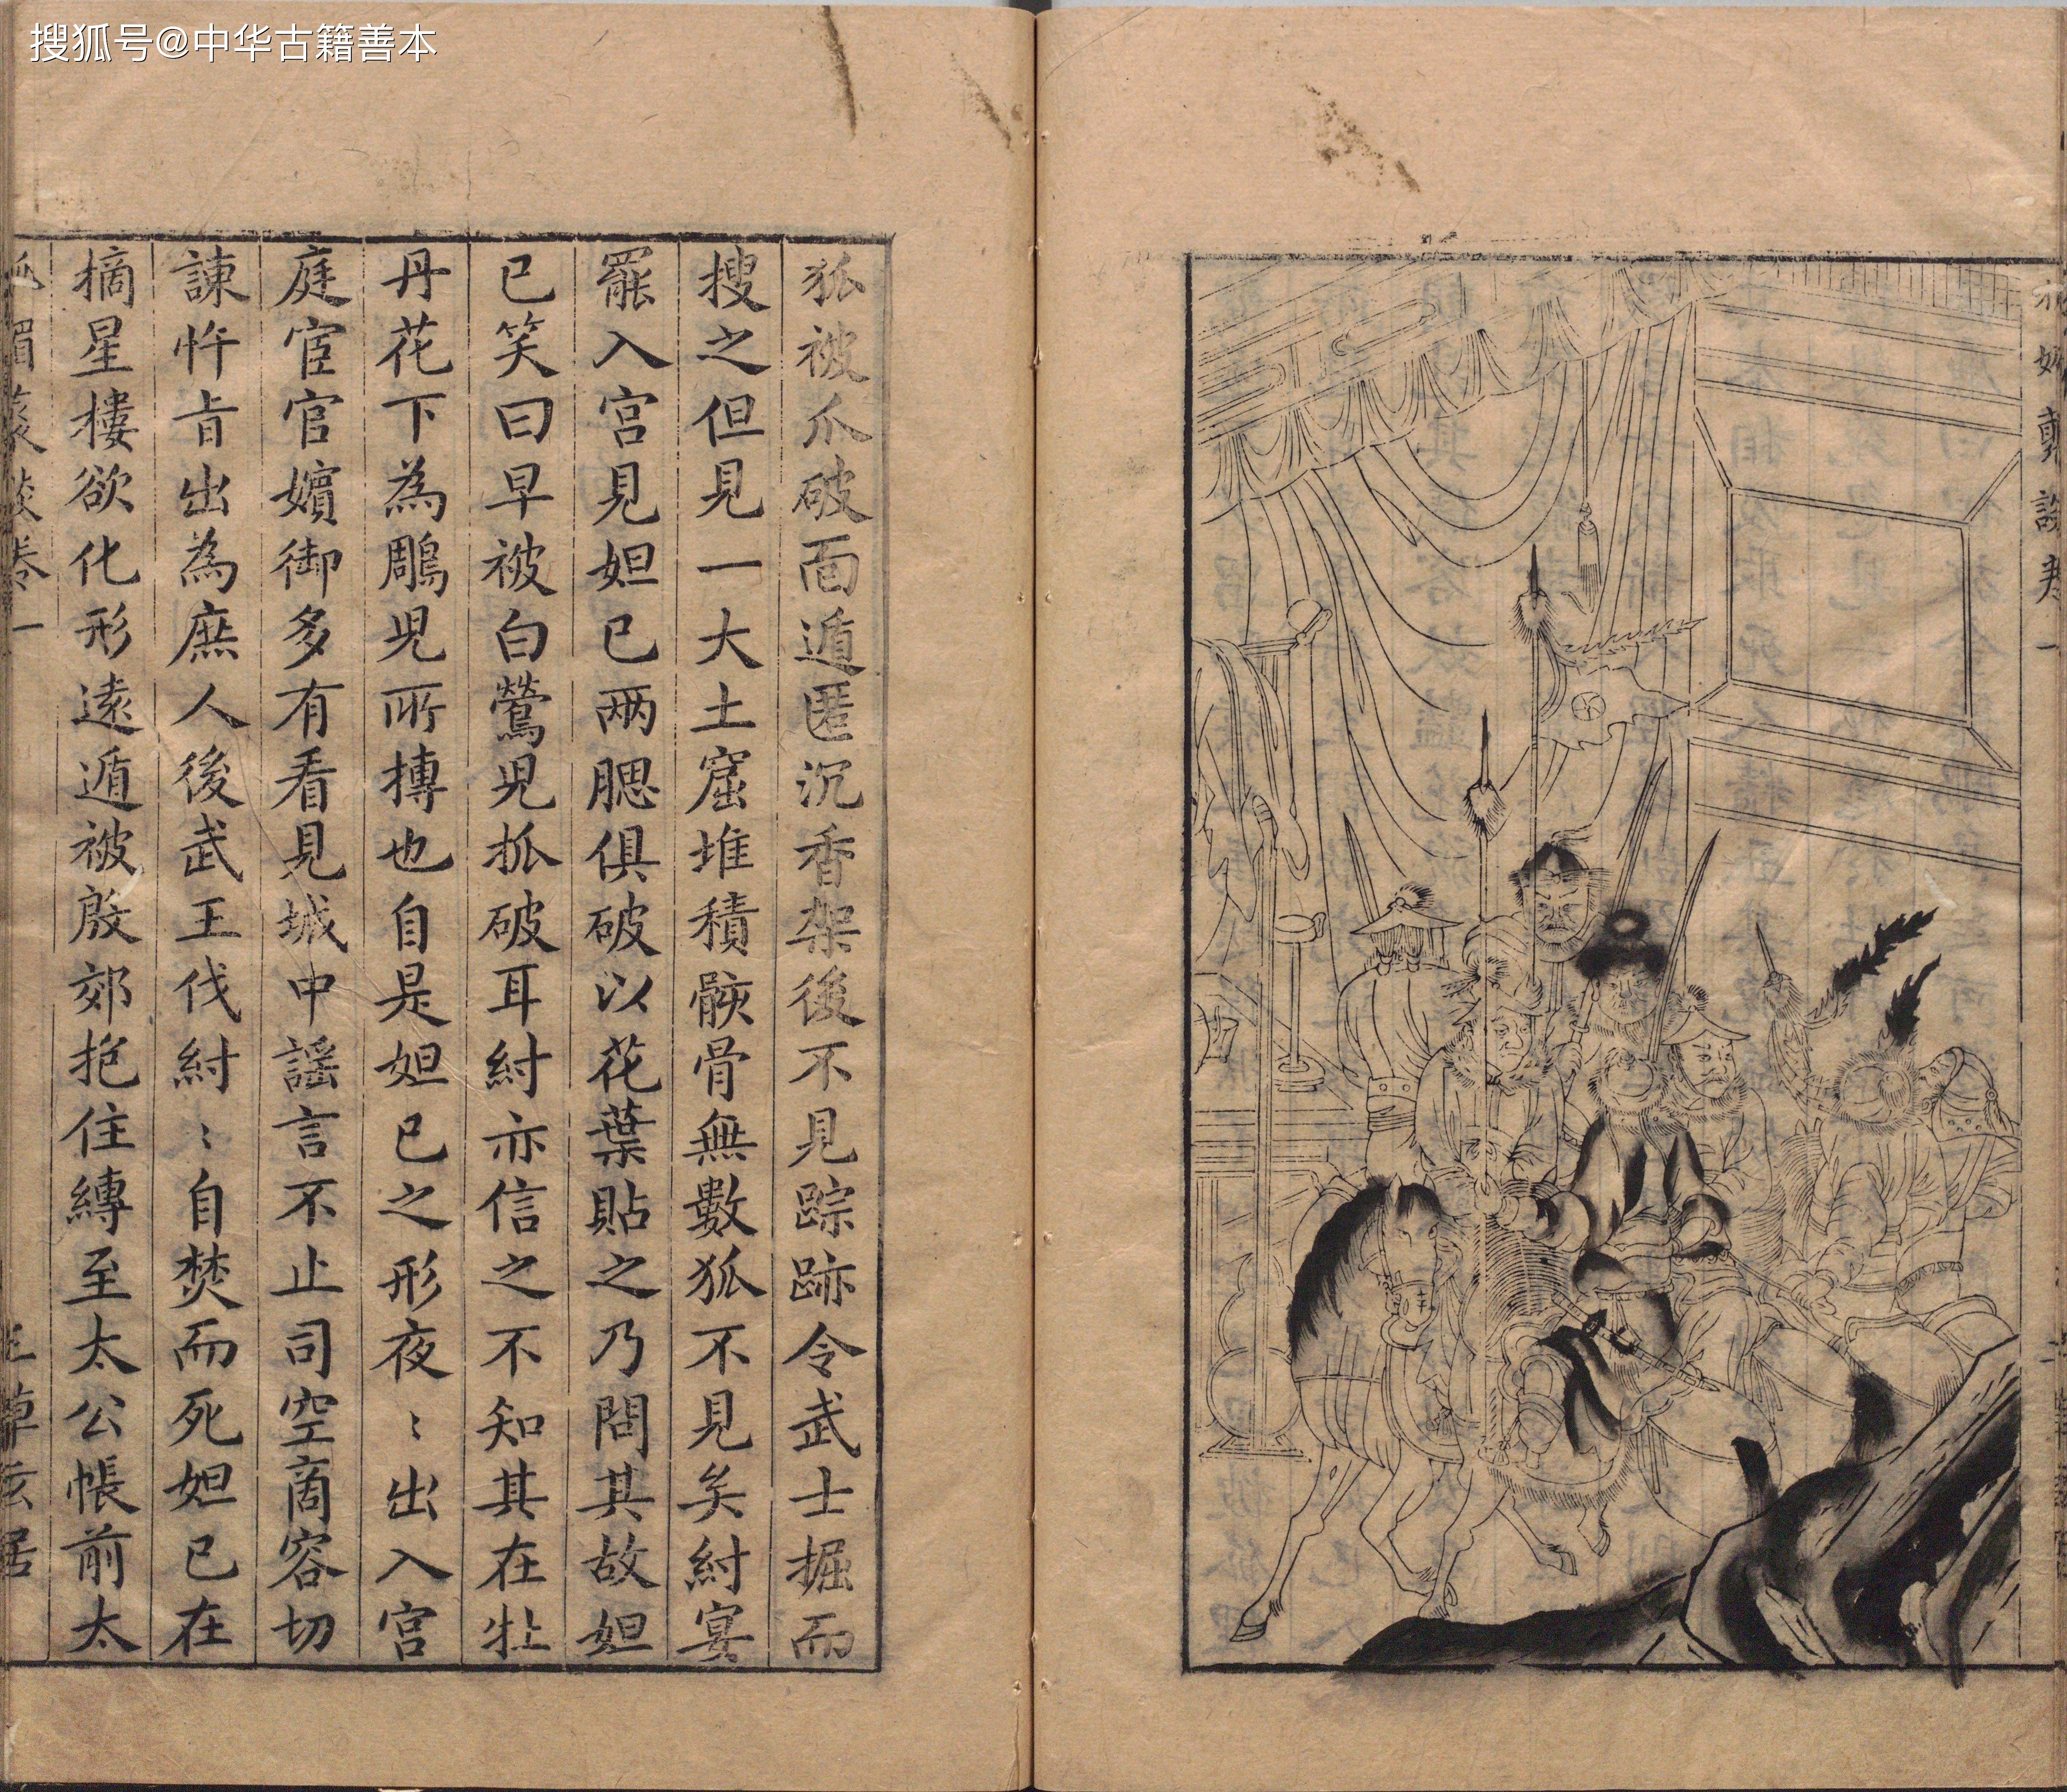 搜狐号@中华古籍善本
狐被爪破面遁匿沉香架後不見踪跡令武士掘而
搜之但見一大土窟堆積骸骨無數狐不見矣紂宴
罷入宫見妲已两腮俱破以花葉貼之乃問其故妲
已笑曰早被白鶯児抓破耳紂亦信之不知其在牡
丹花下為鵰児所摶也自是妲已之形夜〻出入宫
庭宦官嬪御多有看見城中謡言不止司空商容切
諫忤旨出為庶人後武王伐紂〻自焚而死妲已在
摘星樓欲化形遠遁被殷郊抱住縛至太公帳前太
媚叢談卷一
草玄居